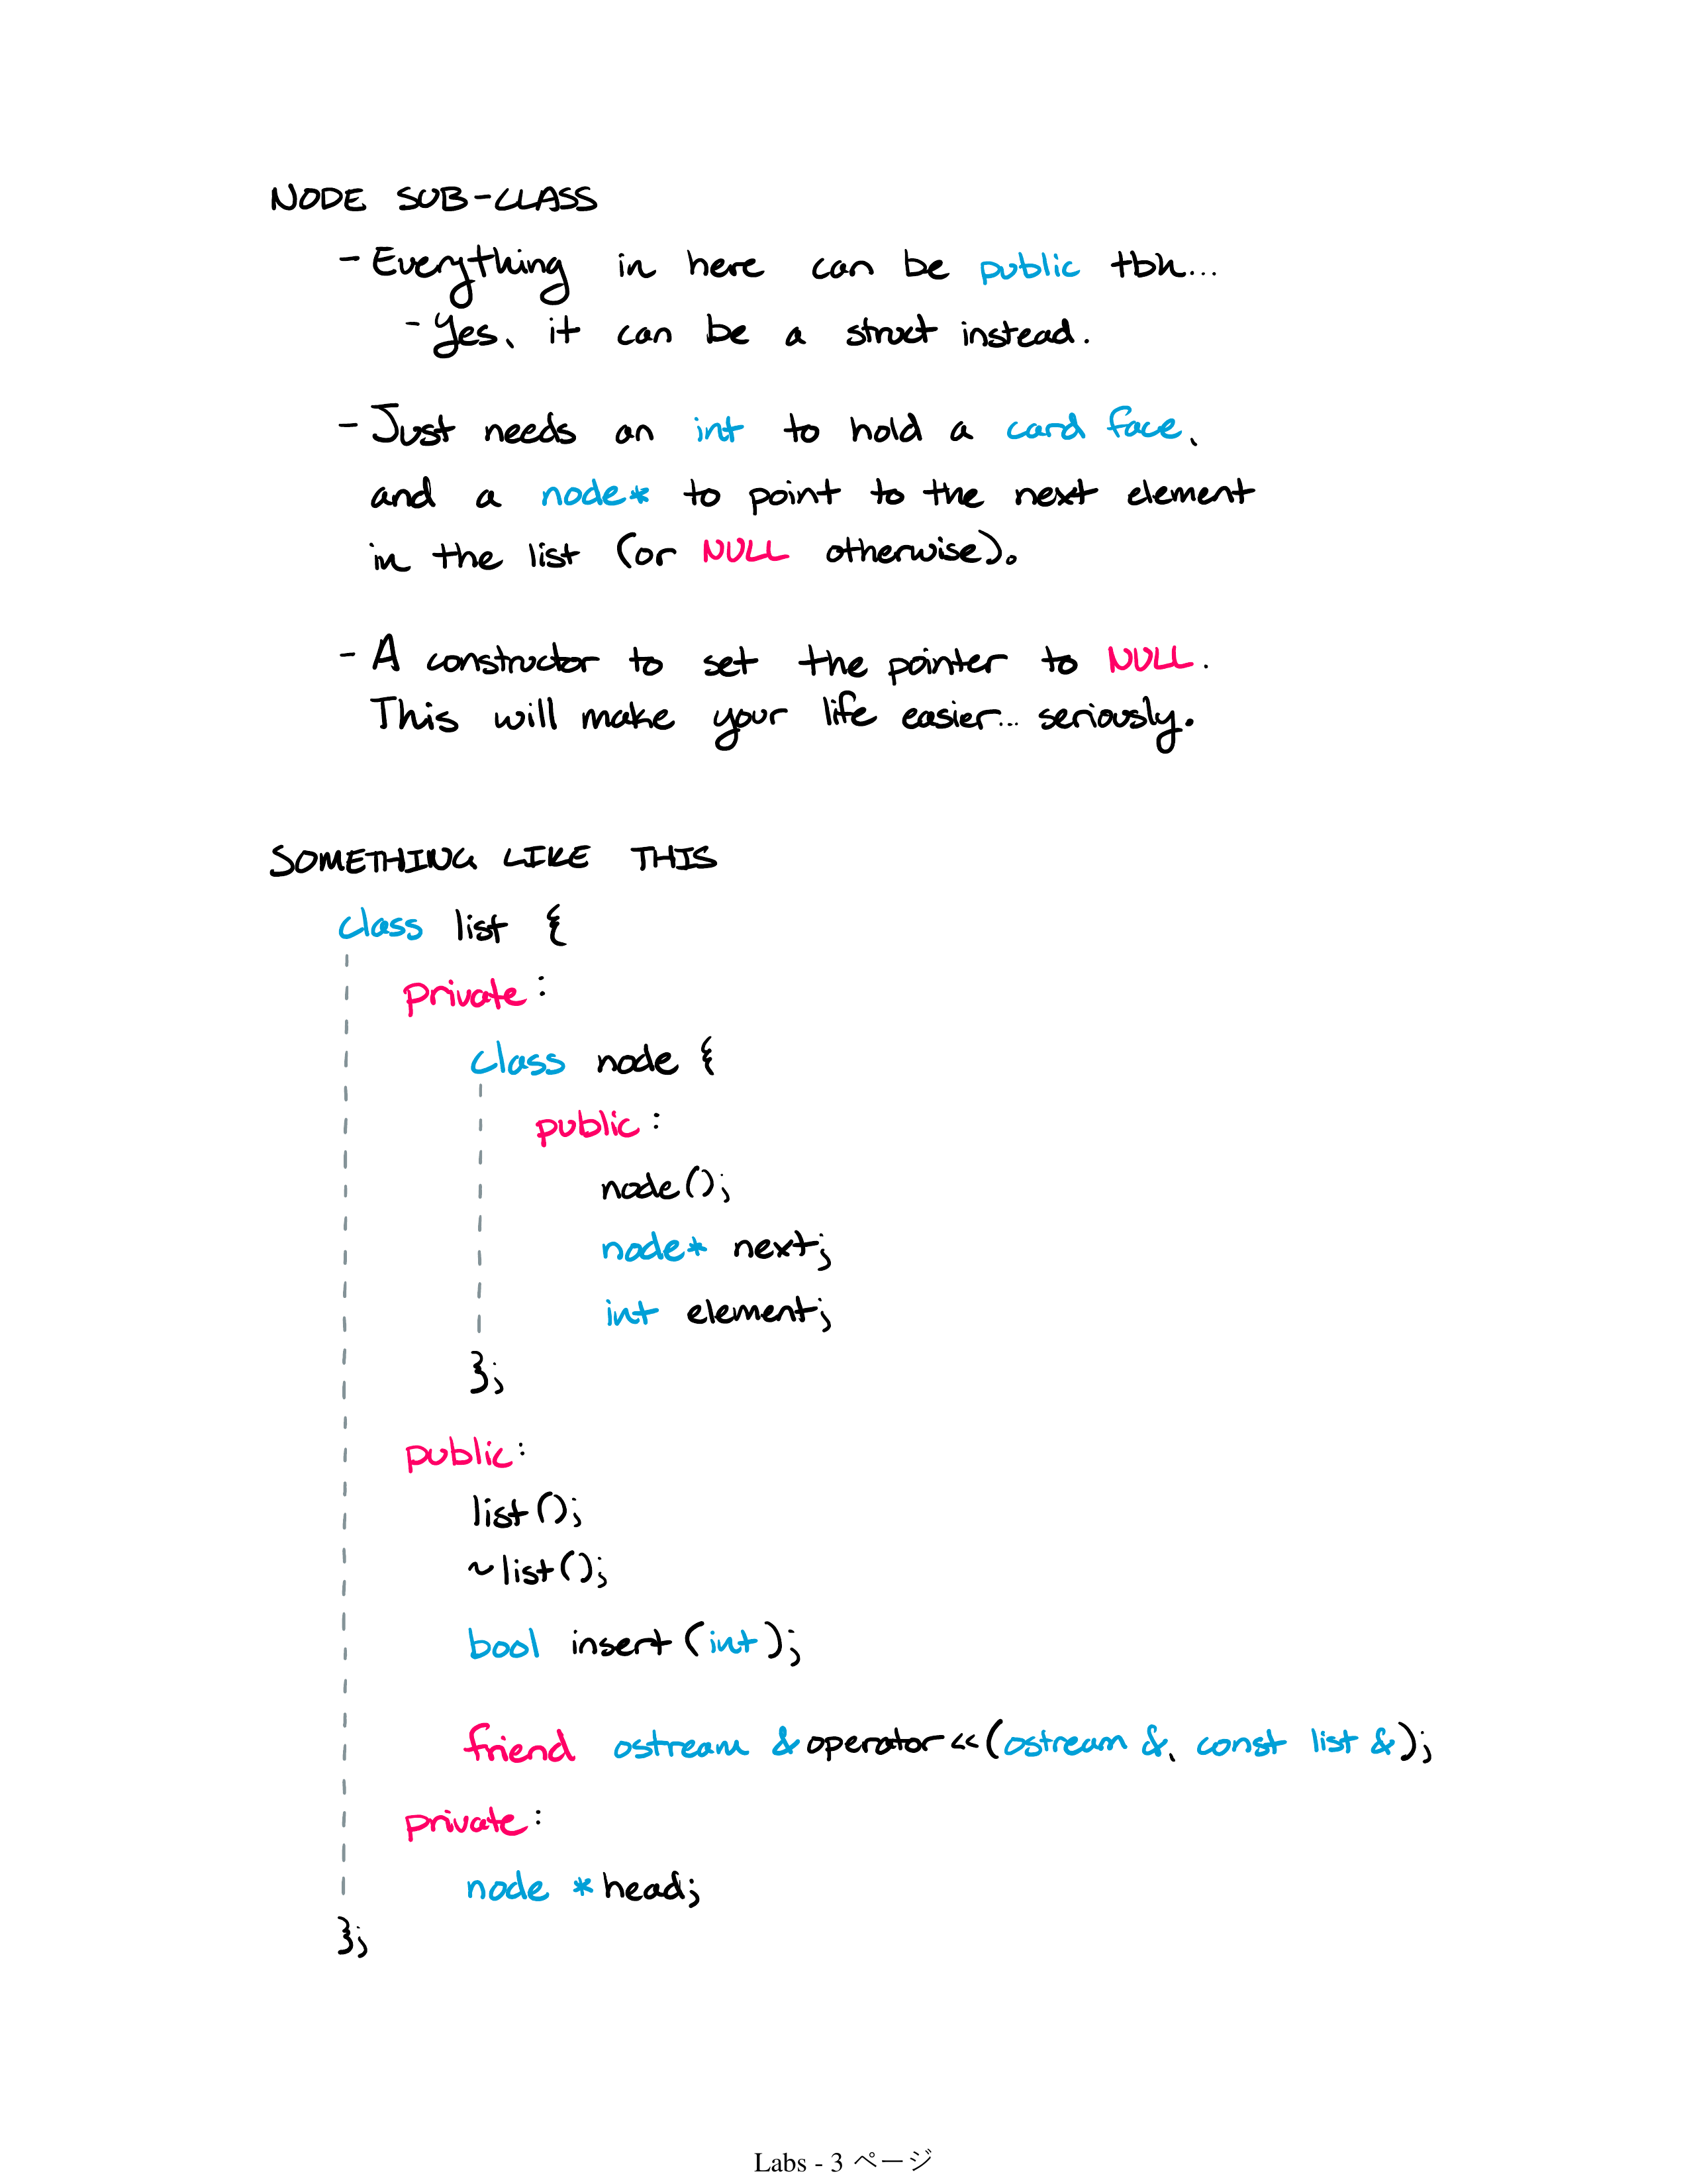 NODE SUB-CLASS
- Everything in here can be public tbh...
- Yes, it can be a struct instead.
- Just needs an int to hold a card face,
and a node* to point to the next element
in the list (or NULL otherwise).
- A constructor to set the pointer to NULL.
This will make your life easier... seriously.
SOMETHING LIKE THIS
class list {
private:
class node {
public:
node();
node* next;
int element;
};
public:
list();
~list();
bool insert(int);
friend ostream &operator<<(ostream &, const list &);
private:
node *head;
};
Labs - 3 ページ